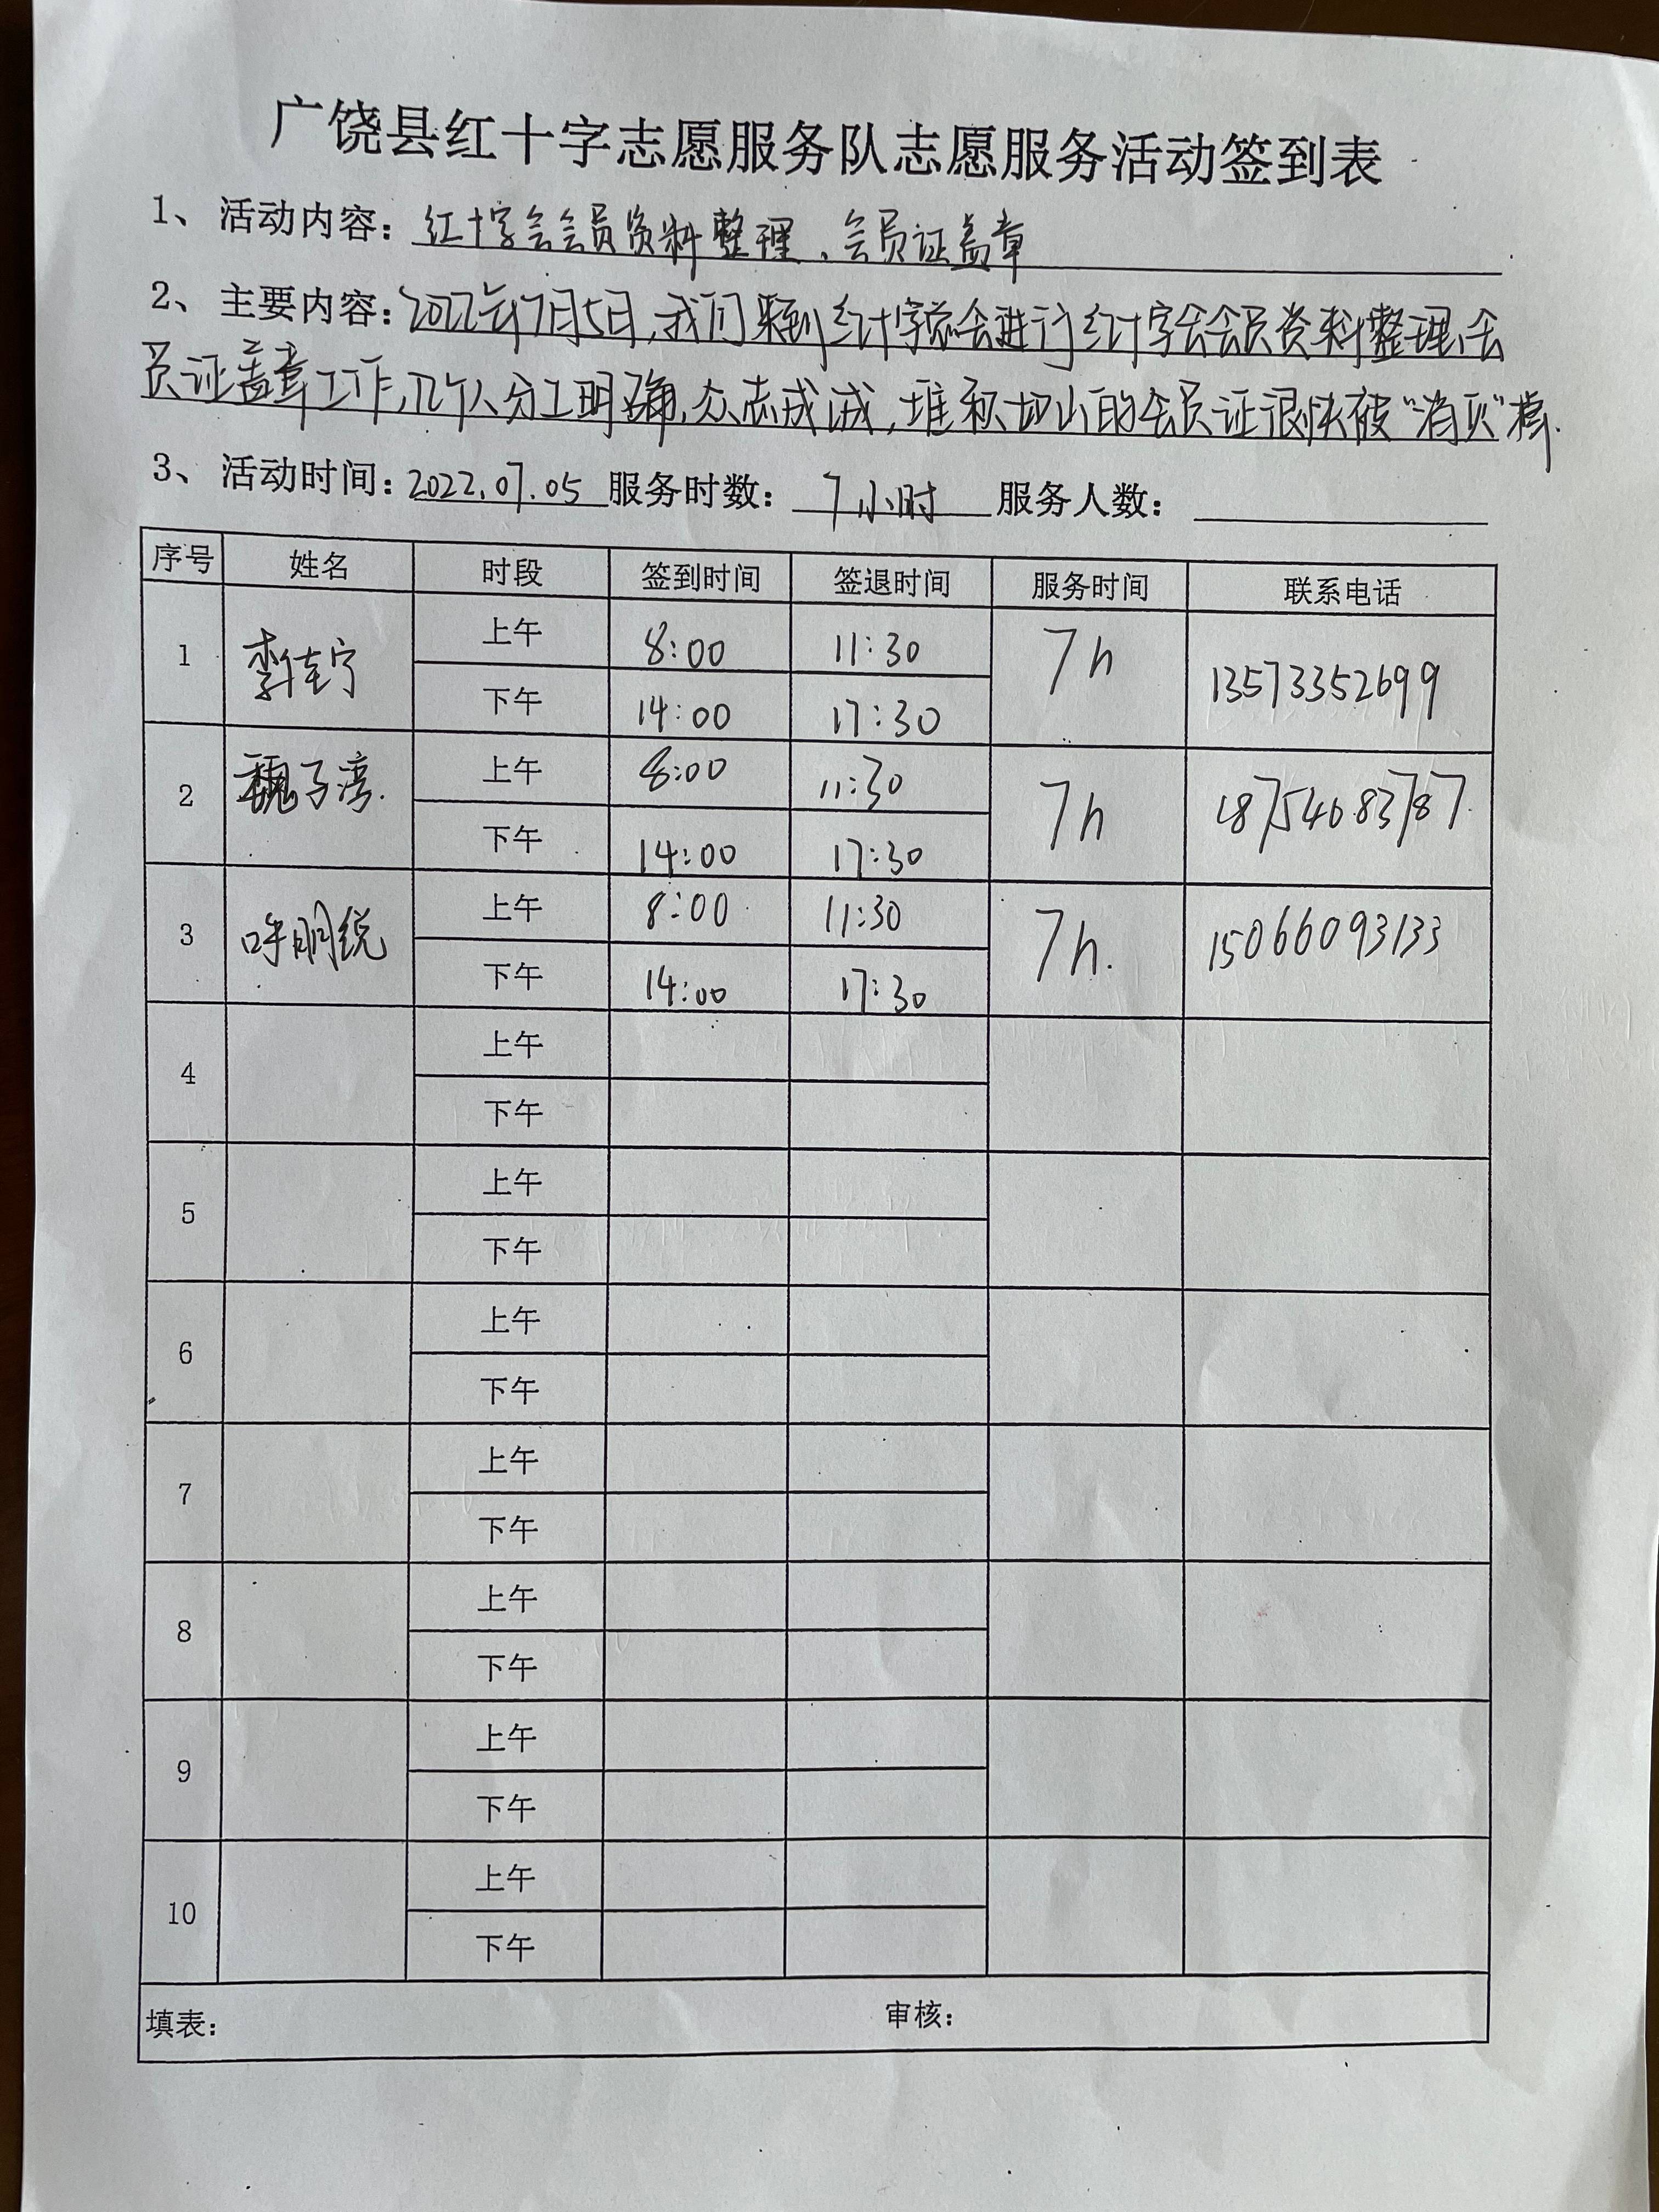 广饶县红十字志愿服务队志愿服务活动签到表
1、活动内容：红十字会会员资料整理、会员证盖章
2、主要内容：2022年7月5日，我们来到红十字总会进行红十字会会员资料整理、会
员证盖章工作，几个人分工明确，众志成诚，堆积如山的会员证很快被“消灭”掉.
3、活动时间：2022.07.05 服务时数：7小时 服务人数：
序号 姓名 时段 签到时间 签退时间 服务时间 联系电话
1 李佳宁 上午 8:00 11:30 7h 13573352699
下午 14:00 17:30
2 魏子湾. 上午 8:00 11:30 7h 18754683787
下午 14:00 17:30
3 呼明锐 上午 8:00 11:30 7h. 15066093133
下午 14:00 17:30
4 上午
下午
5 上午
下午
6 上午
下午
7 上午
下午
8 上午
下午
9 上午
下午
10 上午
下午
填表： 审核：